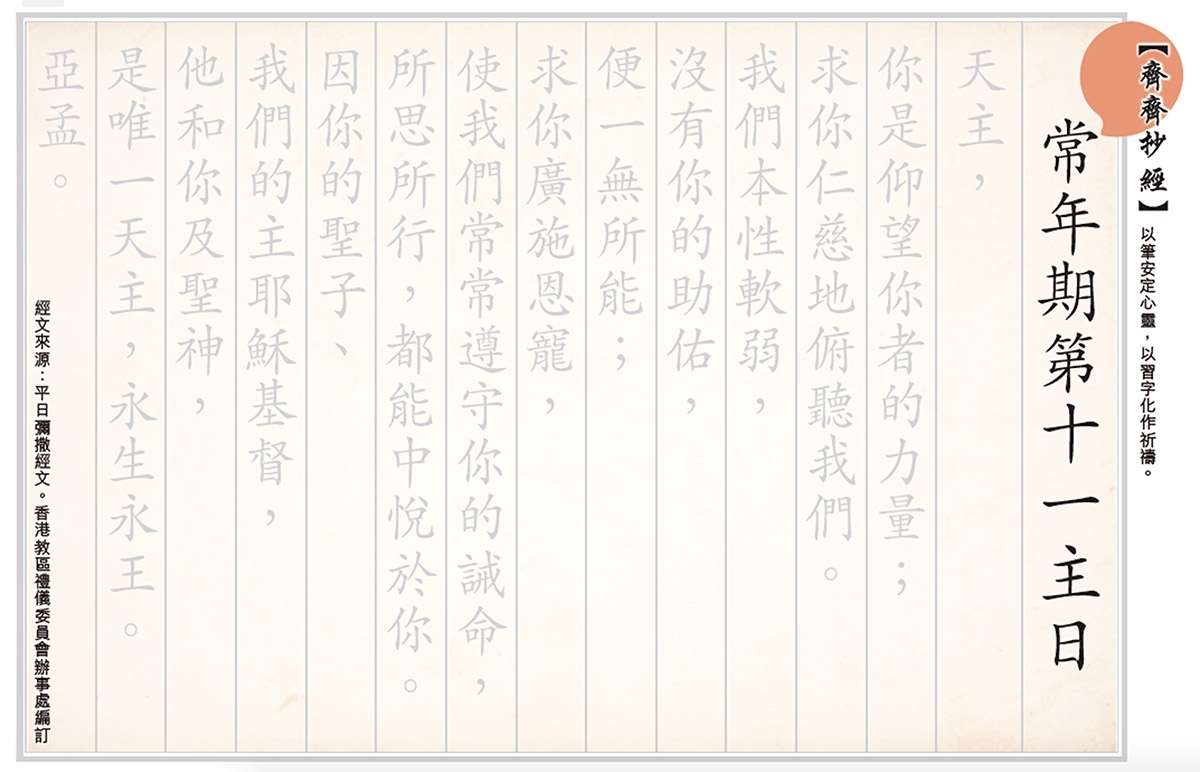 【齊齊抄經】
以筆安定心靈，以習字化作祈禱。
常年期第十一主日
天主，
你是仰望你者的力量；
求你仁慈地俯聽我們。
我們本性軟弱，
沒有你的助佑，
便一無所能；
求你廣施恩寵，
使我們常常遵守你的誡命，
所思所行，都能中悅於你。
因你的聖子、
我們的主耶穌基督，
他和你及聖神，
是唯一天主，永生永王。
亞孟。
經文來源：平日彌撒經文。香港教區禮儀委員會辦事處編訂